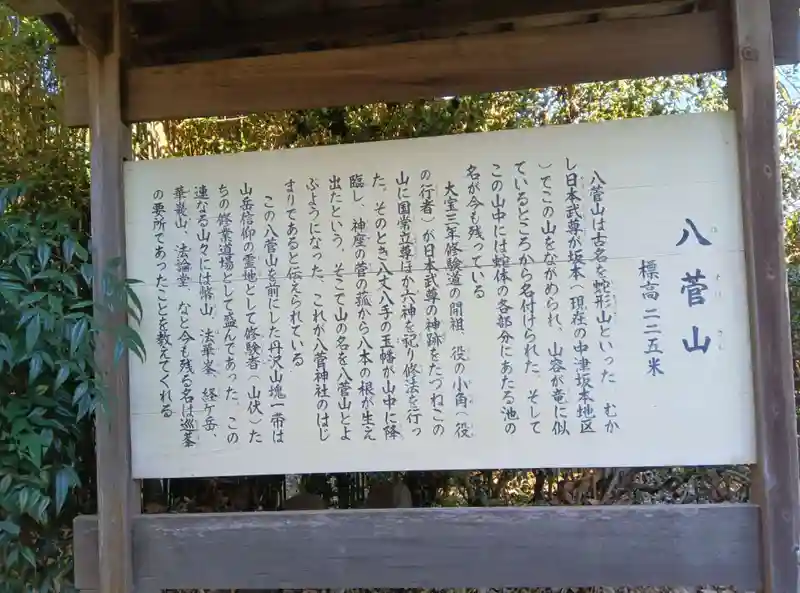 八菅山
はすげさん
標高 二二五米
八菅山は古名を蛇形山といった むか
し日本武尊が坂本（現在の中津坂本地区
）でこの山をながめられ、山容が竜に似
ているところから名付けられた。そして
この山中には蛇体の各部分にあたる池の
名が今も残っている
大宝三年修験道の開祖、役の小角（役
の行者）が日本武尊の神跡をたづねこの
山に国常立尊ほか六神を祀り修法を行っ
た。そのとき八丈八手の玉幡が山中に降
臨し、神座の菅の菰から八本の根が生え
出たという。そこで山の名を八菅山とよ
ぶようになった。これが八菅神社のはじ
まりであると伝えられている
この八菅山を前にした丹沢山塊一帯は
山岳信仰の霊地として修験者（山伏）た
ちの修業道場として盛んであった。この
連なる山々には幣山、法華峯、経ケ岳、
華厳山、法論堂 など今も残る名は巡峯
の要所であったことを教えてくれる